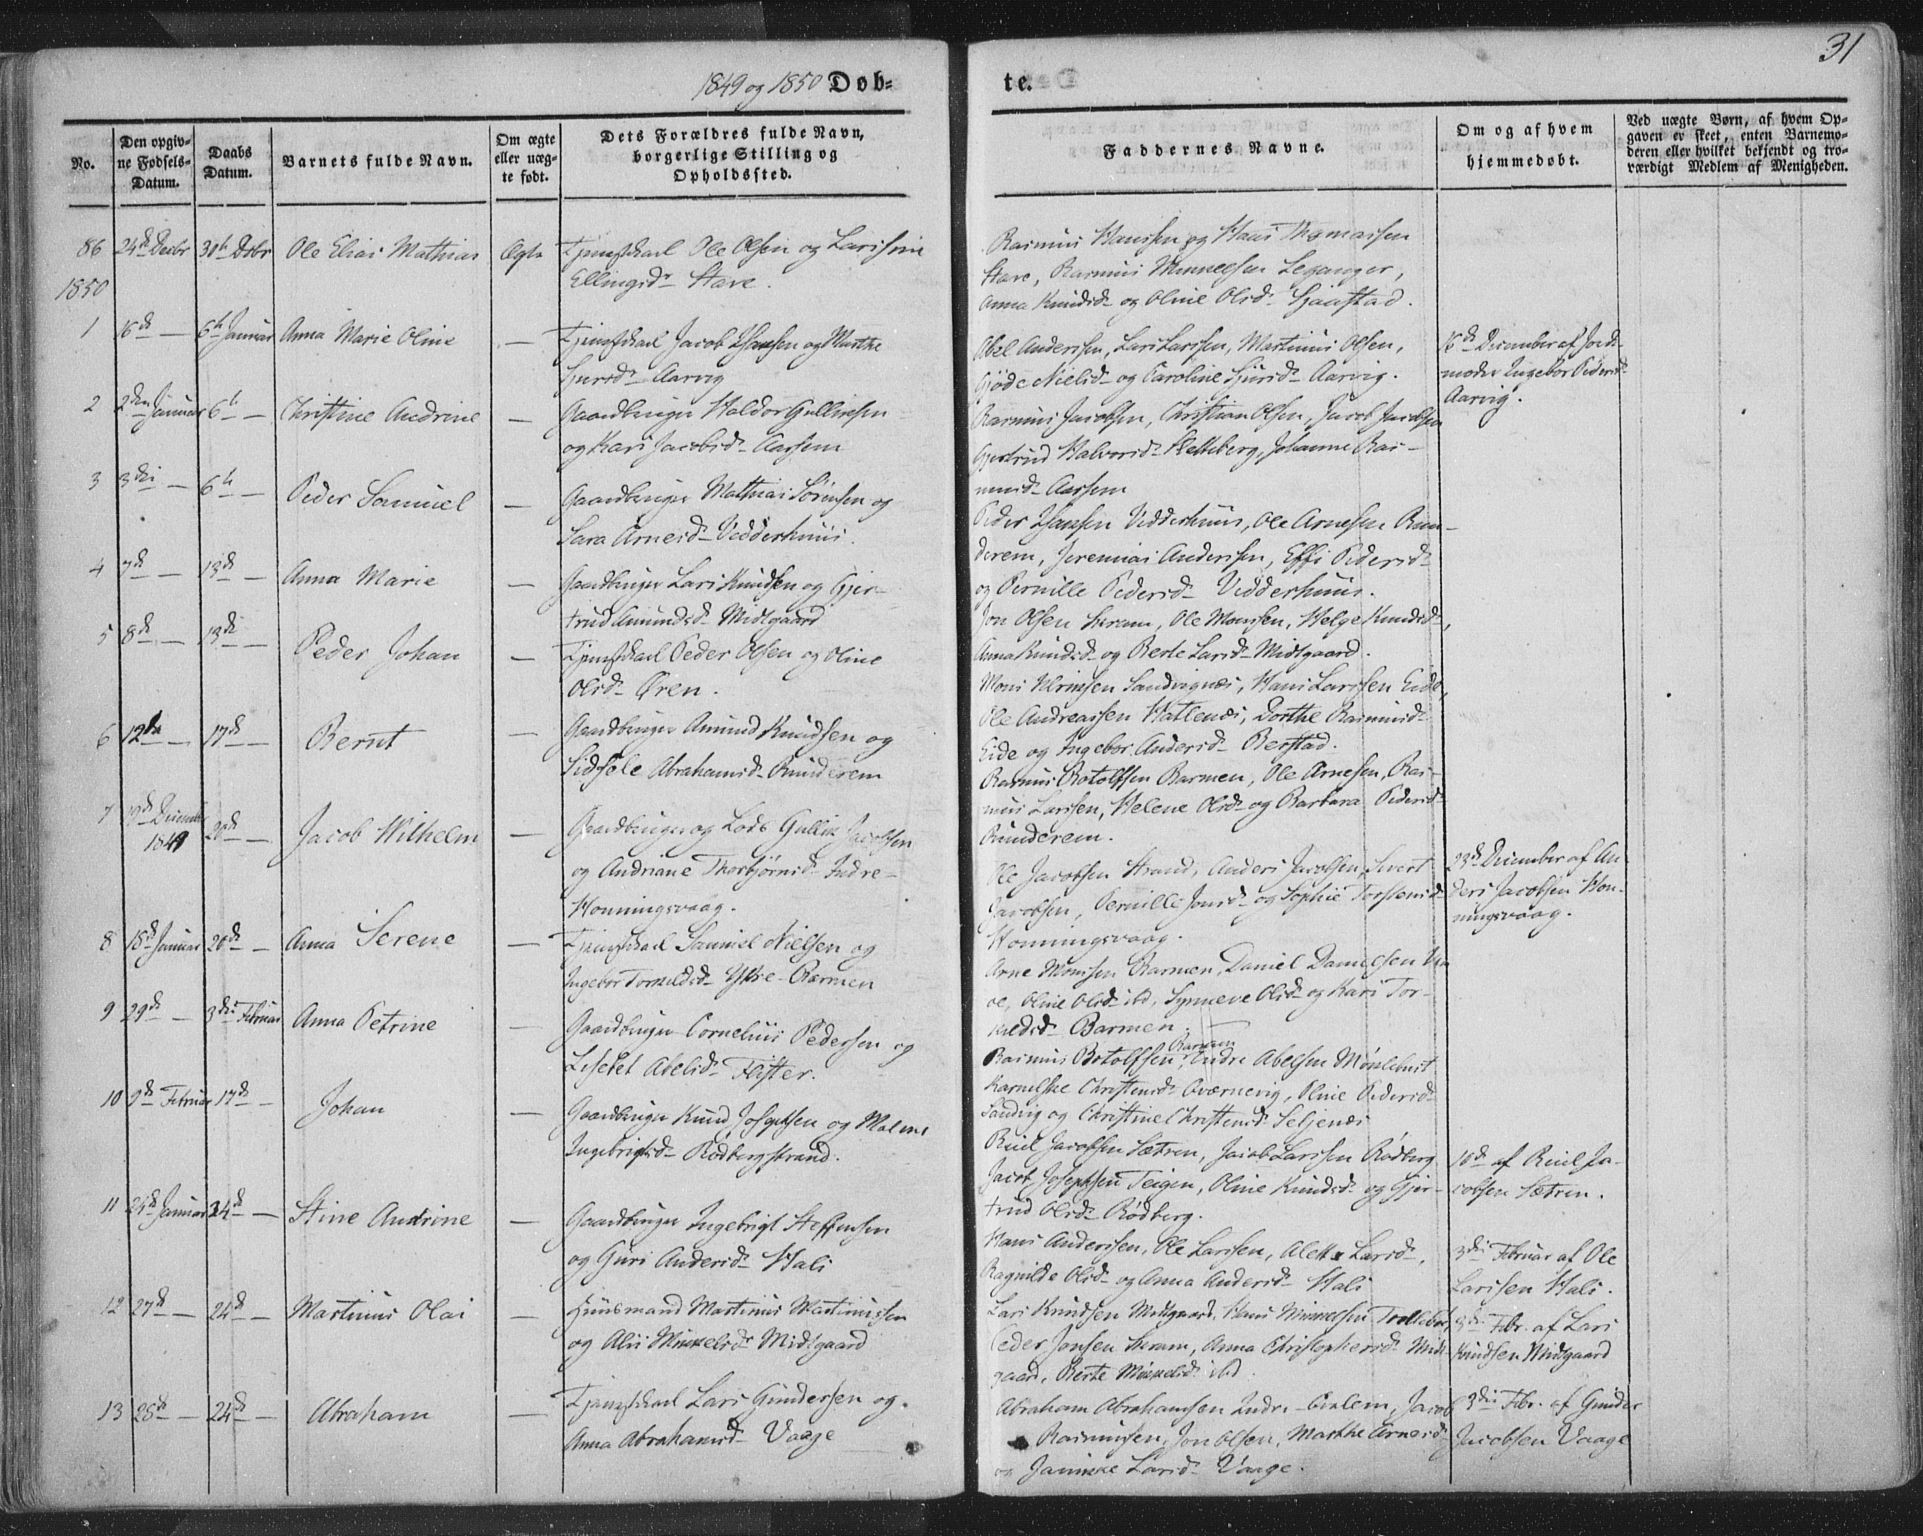 31
1849 og 1850 Døb=
te.
No.
Den opgiv-
ne Fødsels-
Datum.
Daabs
Datum.
Barnets fulde Navn.
Om ægte
eller uæg-
te født.
Dets Forældres fulde Navn,
borgerlige Stilling og
Opholdssted.
Faddernes Navne.
Om og af hvem
hjemmedøbt.
Ved uægte Børn, af hvem Op-
gaven er skeet, enten Barnemo-
deren eller hvilket bekjendt og tro-
værdigt Medlem af Menigheden.
86 24de Decbr 30te Dcbr Ole Elias Mathias Ægte Ole Olsen og
Ellingsd. Stave.
Rasmus Hanssen og Hans Thomassen
Stave, Rasmus Leganger,
Anna Knudsd. og Oline Olsd.
1850
1 6te Januar Anna Marie Oline — Jacob Hansen og Marthe
Aarvig
Abel Anderssen, Lars Larssen, Martinus Olsen,
Nielsd. og Caroline Aarvig.
December af
moder Ingebor Pedersd.
Aarvig.
2 2den Januar 6te — Christine Andrine — Gaardbruger Haldor Gullixsen
og Kari Jacobsd. Aarsem
Rasmus Jacobsen, Christian Olsen, Jacob Jacobsen
Gjertrud Halvorsd. Johanne Ras-
musd. Aarsem
3 3die — 6te — Peder Samuel — Gaardbruger Mathias Sørensen og
Sara Arnesd. Vedderhuus.
Peder Hansen Vedderhuus, Ole Arnesen Run-
derem, Jeremias Andersen, Pedersd.
og Pernille Pedersd. Vedderhuus.
4 7de — 13de — Anna Marie — Gaardbruger Lars Knudsen og Gjer-
trud Amundsd. Midtgaard
Jon Olsen Ole Monsen, Helge Knudsd.,
Anna Knudsd. og Berte Larsd. Midtgaard.
5 8de — 13de — Peder Johan — Peder Olsen og Oline
Olsd. Øren.
Mons Sandvignæs, Hans Larssen Eide,
Ole Andreassen Hatlenæs, Dorthe Rasmusd.
Eide og Ingebor Andersd. Berstad.
6 12te — 17de — Bernt — Gaardbruger Amund Knudsen og
Sidsele Abrahamsd. Runderem
Rasmus Barmen, Ole Arnesen, Ras-
mus Larssen, Helene Olsd. og Barbara Pedersd.
Runderem.
7 19de December
1849 20de — Jacob Wilhelm — Gaardbruger og Lods Gullik Jacobsen
og Andriane Thorbjørnsd. Indre-
Honningsvaag.
Ole Jacobsen Strand, Anders Jacobsen, Sivert
Jacobsen, Pernille Jonsd. og Sophie Torstensd.
Honningsvaag.
23de December af An-
ders Jacobsen Hon-
ningsvaag.
8 15de Januar 20de — Anna Serene — Samuel Nielsen og
Ingebor Torkildsd. Ytre-Barmen
Arne Monssen Barmen, Daniel Danielsen
Oline Olsd. ibd, Synneve Olsd. og Kari Tor-
kildsd. Barmen.
9 29de — 3die Februar Anna Petrine — Gaardbruger Cornelius Pedersen og
Lisebet Abelsd. Flister.
Rasmus Botolfsen Barmen, Endre Abelsen Mønlebust
Christensd. Oline Pedersd.
Sandvig og Christine Christensd. Seljenæs
10 9de Februar 17de — Johan — Gaardbruger Knud Josephsen og Malene
Ingebrigtsd. Rødbergstrand.
Jacobsen Sætren, Jacob Larssen Rødberg
Jacob Josephsen Teigen, Oline Knudsd. og Gjer-
trud Olsd. Rødberg.
10de af Ja-
cobsen Sætren.
11 Januar 24de — Stine Andrine — Gaardbruger Ingebrigt Steffensen
og Guri Andersd. Hals
Hans Anderssen, Ole Larssen, Larsd.,
Ragnilde Olsd. og Anna Andersd. Hals
3die Februar af Ole
Larssen Hals.
12 27de — 24de — Martinus Olai — Huusmand Martinus Martinussen
og Midtgaard
Lars Knudsen Midtgaard, Hans
Peder Jonsen Anna Christophersd. Midt-
gaard, Berte ibd.
3die Febr. af Lars
Knudsen Midtgaard
13 28de — 24de — Abraham — Lars Gundersen og
Anna Abrahamsd. Vaage
Abraham Abrahamsen Indre- Jacob
Rasmussen, Jon Olsen, Marthe Arnesd.
og Larsd. Vaage.
3die Febr. af Gunder
Jacobsen Vaage